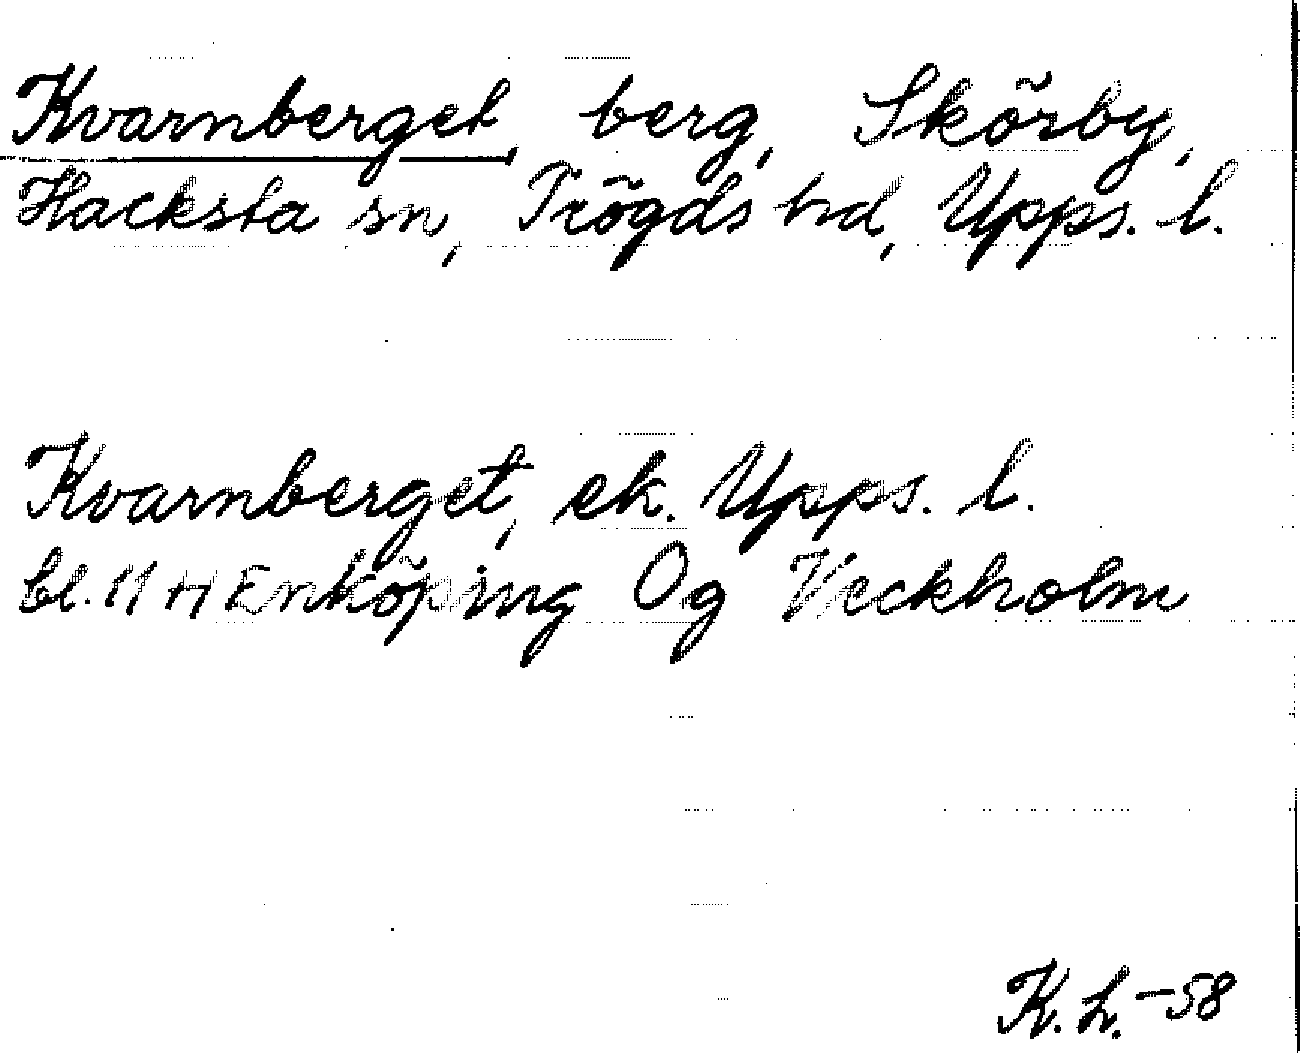 Kvarnberget, berg, Skörby,
Hacksta sn, Trögds hd, Upps. l.
Kvarnberget, ek. Upps. l.
bl. 11 H Enköping Og Veckholm
K. L. -58